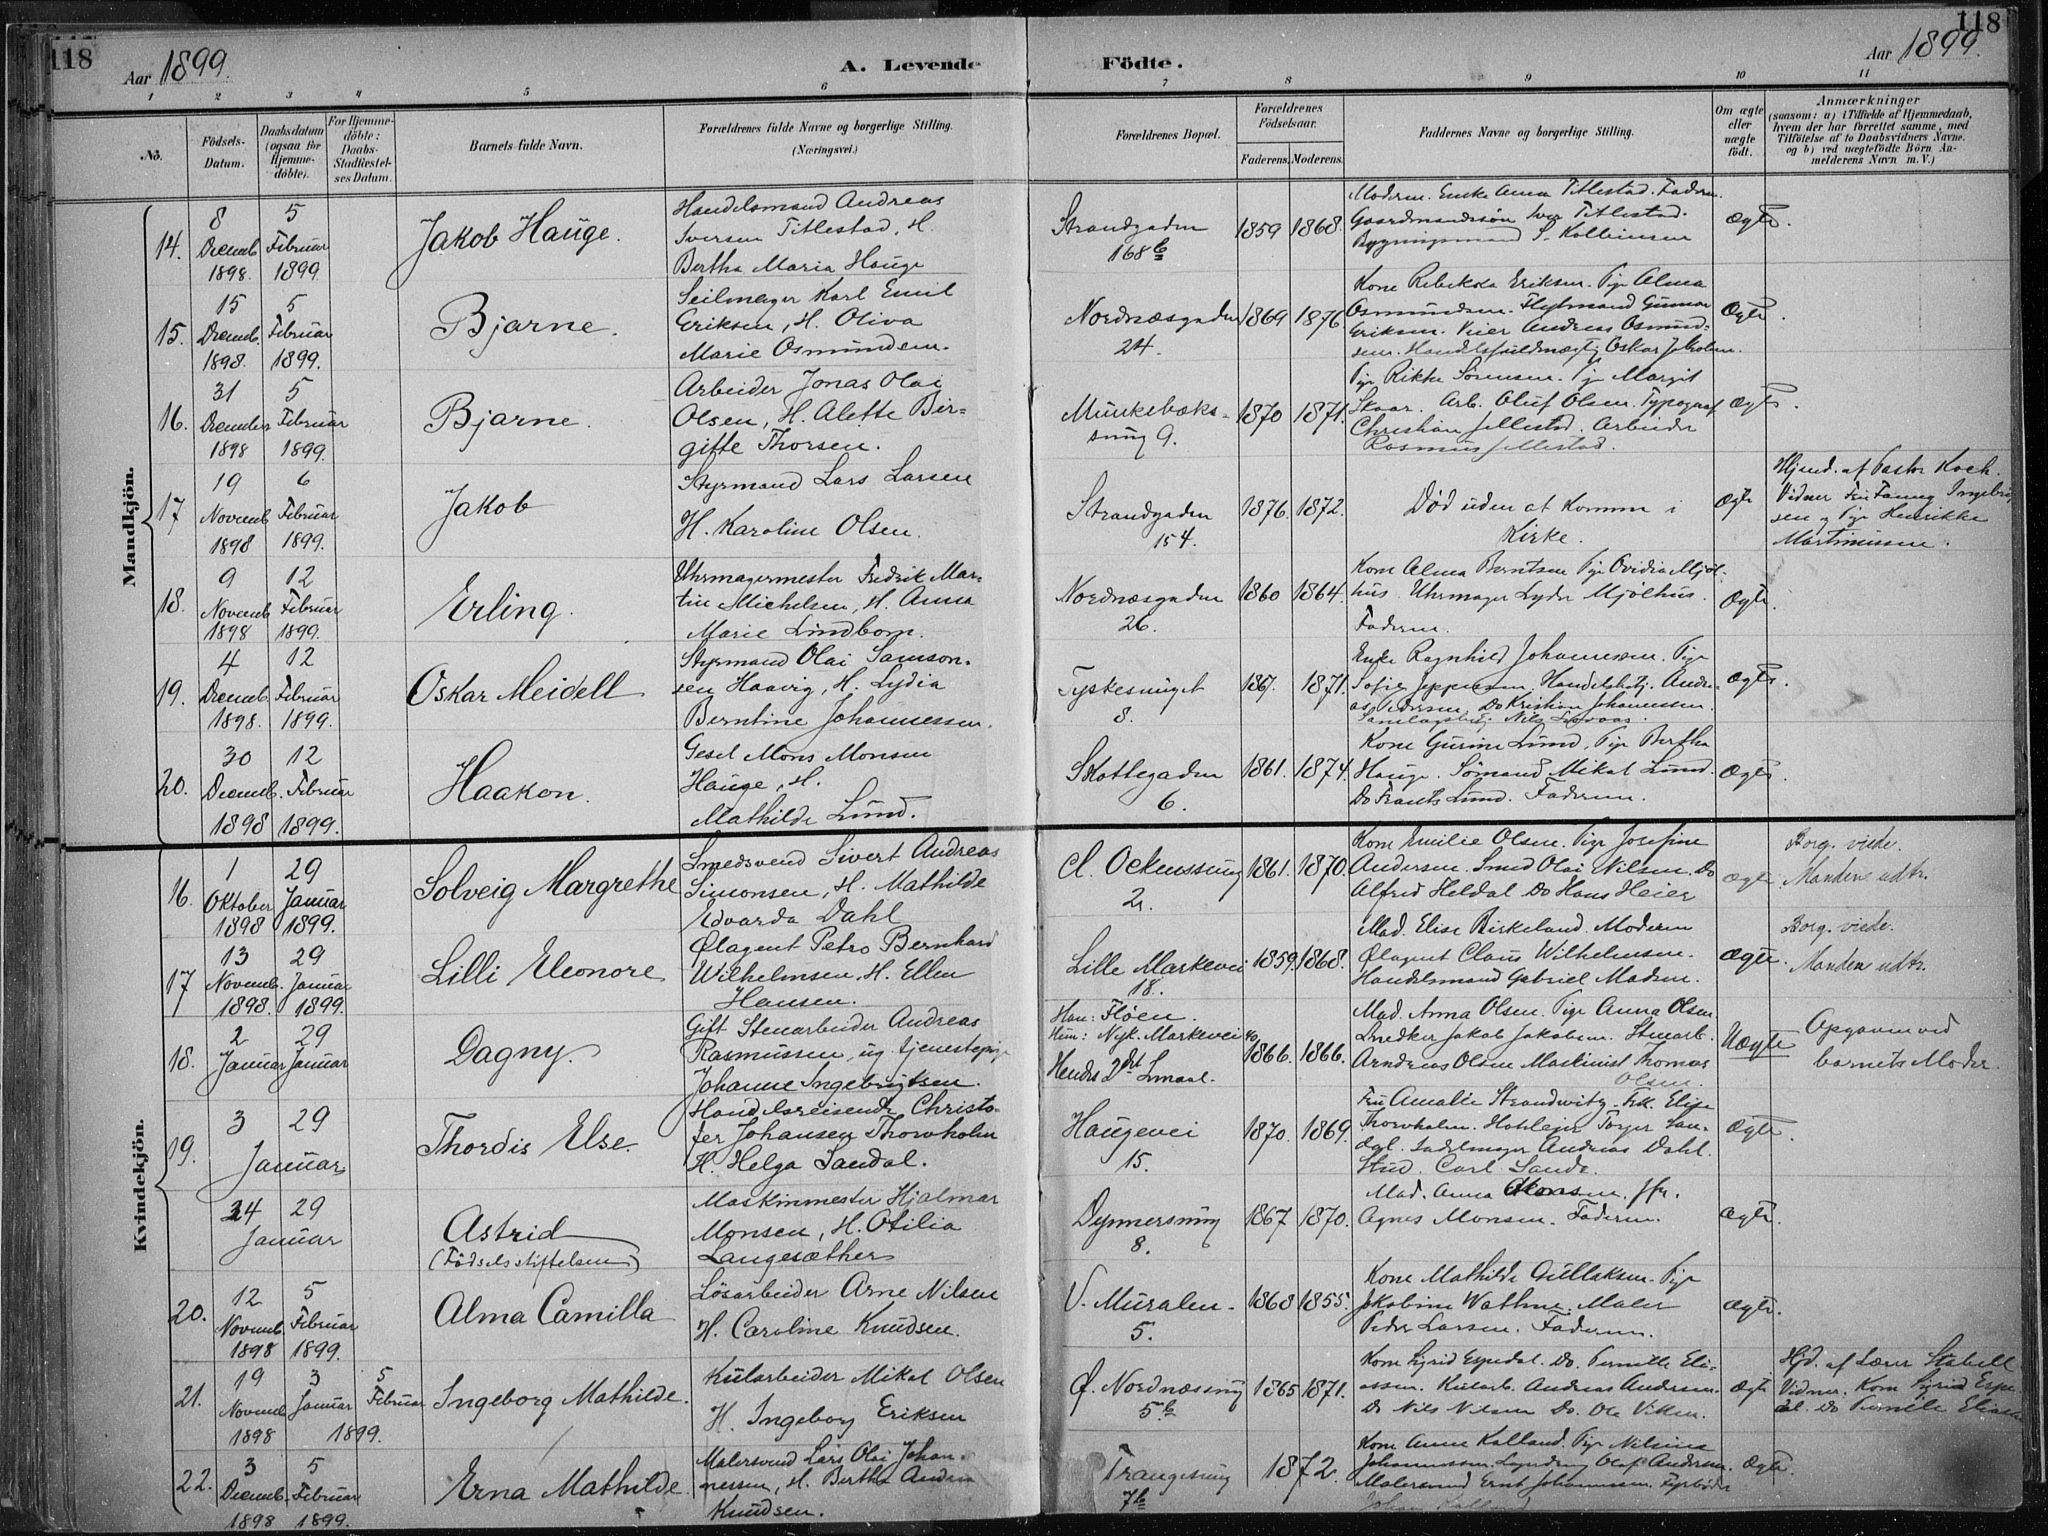 118
Aar 1899.
A. Levende Födte.
Aar 1899.
118
1 2 3 4 5 6 7 8 9 10 11
No. Födsels-Datum. Daabsdatum (ogsaa for Hjemmedöbte). For Hjemmedöbte: Daabs-Stadfæstelses Datum. Barnets fulde Navn. Forældrenes fulde Navne og borgerlige Stilling. (Næringsvei.) Forældrenes Bopæl. Forældrenes Födselsaar. Faderens. Moderens. Faddernes Navne og borgerlige Stilling. Om ægte eller uægte födt. Anmærkninger (saasom: a) i Tilfælde af Hjemmedaab, hvem der har forrettet samme, med Tilföielse af to Daabsvidners Navne. og b) ved uægtefödte Börn Anmelderens Navn m. V.)
Mandkjön.
14. 8 Decemb. 1898. 5 Februar 1899. Jakob Hauge.
Handelsmand Andreas
Iversen Titlestad, H.
Bertha Maria Hauge
Strandgaden 168 b 1859 1868.
Moderen. Enke Anna Titlestad. Faderen.
Gaardmandssön Iver Titlestad.
Bygningsmand S. Kolbeinsen
Ægte.
15. 15 Decemb. 1898. 5 Februar 1899. Bjarne.
Seilmager Karl Emil
Eriksen, H. Oliva
Marie Osmundsen.
Nordnæsgaden 24. 1869 1876
Kone Rebekka Eriksen. Pige Alma
Osmundsen. Gunnar
Eriksen. Andreas Osmund-
sen. Handelsfuldmægtig Oskar Jakobsen.
Ægte.
16. 31 December 1898 5 Februar 1899. Bjarne.
Arbeider Jonas Olai
Olsen, H. Alette Bir-
gitte Thorsen.
Munkebæks-
smug 9. 1870 1871.
Pige Rikke Sörensen. Pige Margit
Skaar. Arb. Oluf Olsen. Typograf
Christian Jellestad. Arbeider
Rasmus Jellestad.
Ægte.
17 19 Novemb. 1898 6 Februar 1899. Jakob
Styrmand Lars Larsen
H. Karoline Olsen.
Strandgaden 154. 1876. 1872.
Död uden at komme i
Kirke.
Ægte
Hjemd. af Pastor Koch.
Vidner Fru Fanny Ingebrig
sen og Pige Henrikke
Martinussen.
18. 9 Novemb. 1898 12 Februar 1899. Erling.
Uhrmagermester Fredrik Mar-
tin Michelsen, H. Anna
Marie Lindbom.
Nordnæsgaden 26. 1860 1864.
Kone Alma Berntsen Pige Ovidia Mjöl-
hus. Uhrmager Lyder Mjölhus.
Faderen.
Ægte.
19. 4 Decemb. 1898. 12 Februar 1899. Oskar Meidell
Styrmand Olai Samson-
sen Haavig, H. Lydia
Berntine Johannessen.
Tyskesmuget 8. 1867. 1871.
Enke Ragnhild Johannessen. Pige
Sofie Jeppesen. Handelsbetj. Andre-
as Pedersen. Do Kristian Johannessen.
Nils
Ægte.
20. 30 Decemb. 1898 12 Februar 1899. Haakon.
Gesel Mons Monsen
Hauge, H.
Mathilde Lund.
Skottegaden 6. 1861. 1874.
Kone Gurine Lund. Pige Bertha
Hauge. Sömand Mikal Lund.
Do Frants Lund. Faderen.
Ægte.
Kvindekjön.
16. 1 Oktober 1898 29 Januar 1899. Solveig Margrethe
Smedsvend Sivert Andreas
Simonsen, H. Mathilde
Edvarda Dahl
Cl. Ockenssmug 2. 1861. 1870.
Kone Emilie Olsen. Pige Josefine
Andersen. Smed Olai Nilsen. Do
Alfred Heldal Do Hans Heier
Ægte.
Borg. viede.
Manden udtr.
17 13 Novemb. 1898. 29 Januar 1899. Lilli Eleonore
Ølagent Petro Bernhard
Wilhelmsen, H. Ellen
Hansen.
Lille Markevei 18. 1859. 1868.
Mad. Elise Birkeland. Moderen
Ølagent Claus Wilhelmsen.
Handelsmand Gabriel Madsen.
Ægte.
Borg. viede.
Manden udtr.
18. 2 Januar 29 Januar Dagny.
Gift Stenarbeider Andreas
Rasmussen, ug. tjenestepige
Johanne Ingebrigtsen.
Han: Flöen.
Hun: Nyk. Markevei 40
Hendes 2det Smaal. 1866. 1866.
Mad. Anna Olsen. Pige Anna Olsen
Snedker Jakob Jakobsen. Stenarb.
Andreas Olsen Maskinist Thomas
Olsen.
Uægte
Opgaven ved
barnets Moder.
19. 3 29 Januar Thordis Else.
Handelsreisende Christo-
fer Johansen Thorvholm
H. Helga Sandal.
Haugevei 15. 1870. 1869.
Fru Amalie Strandvitz. Frk. Elise
Thorvholm. Torger San-
dal. Sadelmager Andreas Dahl.
Stud. Carl Sande.
Ægte.
24 29 Januar Astrid
(Födselsstiftelsen)
Maskinmester Hjalmar
Monsen, H. Otilia
Langesæther
Dynnersmug 8. 1867 1870.
Mad. Anna Monsen. Jfr.
Agnes Monsen. Faderen.
Ægte.
20. 12 Novemb. 1898 5 Februar 1899. Alma Camilla
Lösarbeider Arne Nilsen
H. Caroline Knudsen.
V. Muralm. 5. 1868 1855.
Kone Mathilde Gullaksen. Pige
Jakobine Wathne. Maler
Peder Larsen. Faderen.
Ægte.
21. 19 Novemb. 1898 3 Januar 5 Februar 1899. Ingeborg Mathilde.
Kularbeider Mikal Olsen
H. Ingeborg Eriksen
Ø. Nordnæssmug 5 b 1865 1871.
Kone Sigrid Espedal. Do. Pernille Eli-
assen. Kularb. Andreas Andersen.
Do Nils Nilsen Do. Ole Viken.
Ægte
Hjd. af Lærer Stabell
Vidner. Kone Sigrid Espe
dal. Do Pernille Eliassen
22. 3 Decemb. 1898 5 Februar 1899. Erna Mathilde
Malersvend Lars Olai Johan-
nessen, H. Bertha Andrea
Knudsen.
Trangesmug 7 b 1872.
Kone Anne Kalland. Pige Nilsine
Johannessen. Olaf Andersen.
Malersvend Ernst Johannessen. Fyrböder
Johan Kalland
Ægte.